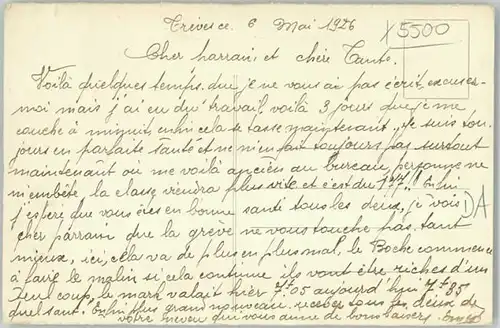 Trèves ce 6 Mai 1926
5500
Cher parrain et chère Tante.
Voilà quelques temps que je ne vous ai pas écrit, excusez-
moi mais j'ai eu du travail, voilà 3 jours que je me
couche à minuit, enfin cela se tasse maintenant. Je suis tou-
jours en parfaite santé et ne m'en fait toujours pas surtout
maintenant où me voilà ancien au bureau, personne ne
m'embête la classe viendra plus vite et c'est du !! Enfin
j'espère que vous êtes en bonne santé tous les deux, je vois
DA
cher parrain que la grève ne vous touche pas, tant
mieux, ici, cela va de plus en plus mal, le Boche commence
à faire le malin si cela continue ils vont être riches d'un
seul coup, le mark valait hier 7f.05 aujourd'hui 7f.85
quel saut. Enfin plus grand nouveau. recevez tous les deux de
votre neveu qui vous donne de bons baisers.